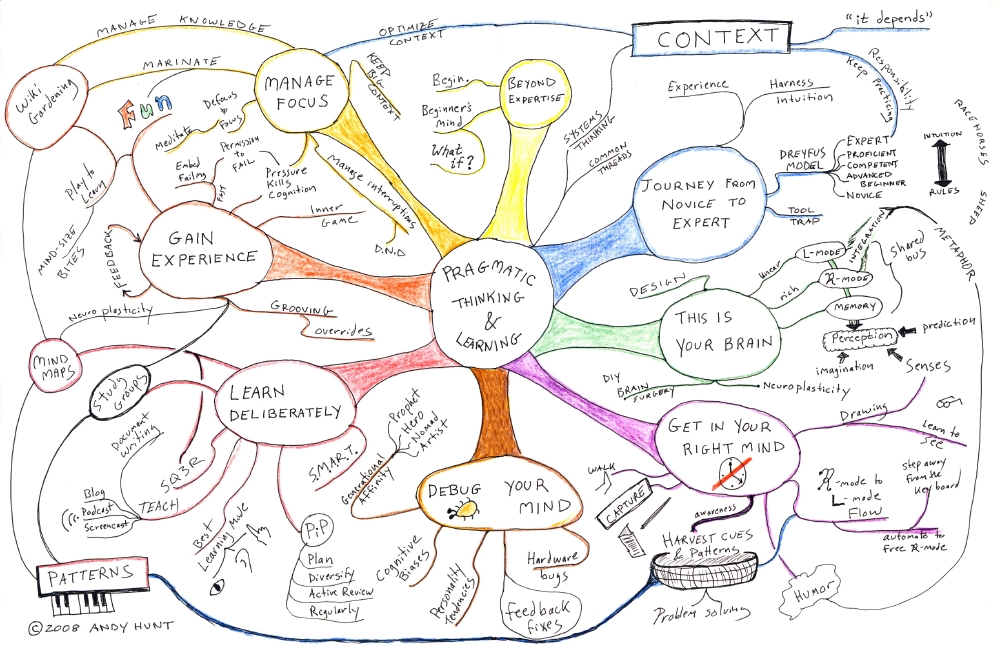 MANAGE KNOWLEDGE
MARINATE
Wiki
Gardening
MANAGE
FOCUS
OPTIMIZE
CONTEXT
KEEP
BIG
CONTEXT
Fun
Defocus
to
Focus
meditate
Manage interruptions
D.N.D
Begin.
Beginner's
Mind
What
if?
BEYOND
EXPERTISE
CONTEXT
"it depends"
Responsibility
Keep Practicing
SYSTEMS
THINKING
COMMON
THREADS
Experience
Harness
Intuition
JOURNEY FROM
NOVICE TO
EXPERT
DREYFUS
MODEL
EXPERT
PROFICIENT
COMPETENT
ADVANCED
BEGINNER
NOVICE
TOOL
TRAP
RACEHORSES
INTUITION
RULES
SHEEP
Play to
Learn
MIND-SIZE
BITES
FEEDBACK
Embed
Failing
FMT
Permission
to
FAIL
Pressure
Kills
Cognition
Inner
Game
GAIN
EXPERIENCE
GROOVING
overrides
Neuroplasticity
PRAGMATIC
THINKING
&
LEARNING
DESIGN
THIS IS
YOUR BRAIN
linear
L-MODE
rich
R-MODE
INTEGRATION
MEMORY
Shared
bus
METAPHOR
Perception
prediction
imagination
Senses
DIY
BRAIN
SURGERY
Neuroplasticity
MIND
MAPS
Study
Groups
LEARN
DELIBERATELY
Document
Writing
SQ3R
TEACH
Blog
Podcast
Screencast
Best
Learning Mode
PiP
Plan
Diversify
Active Review
Regularly
S.M.A.R.T.
Generational
Affinity
Prophet
Hero
Nomad
Artist
DEBUG YOUR
MIND
Cognitive
Biases
Personality
Tendencies
Hardware
bugs
feedback
fixes
GET IN YOUR
RIGHT MIND
Drawing
Learn to
See
R-mode to
L-mode
Flow
step away
from the
Keyboard
automate to
free R-mode
WALK
CAPTURE
awareness
HARVEST CUES
& Patterns
Problem solving
HUMOR
PATTERNS
©2008 ANDY HUNT